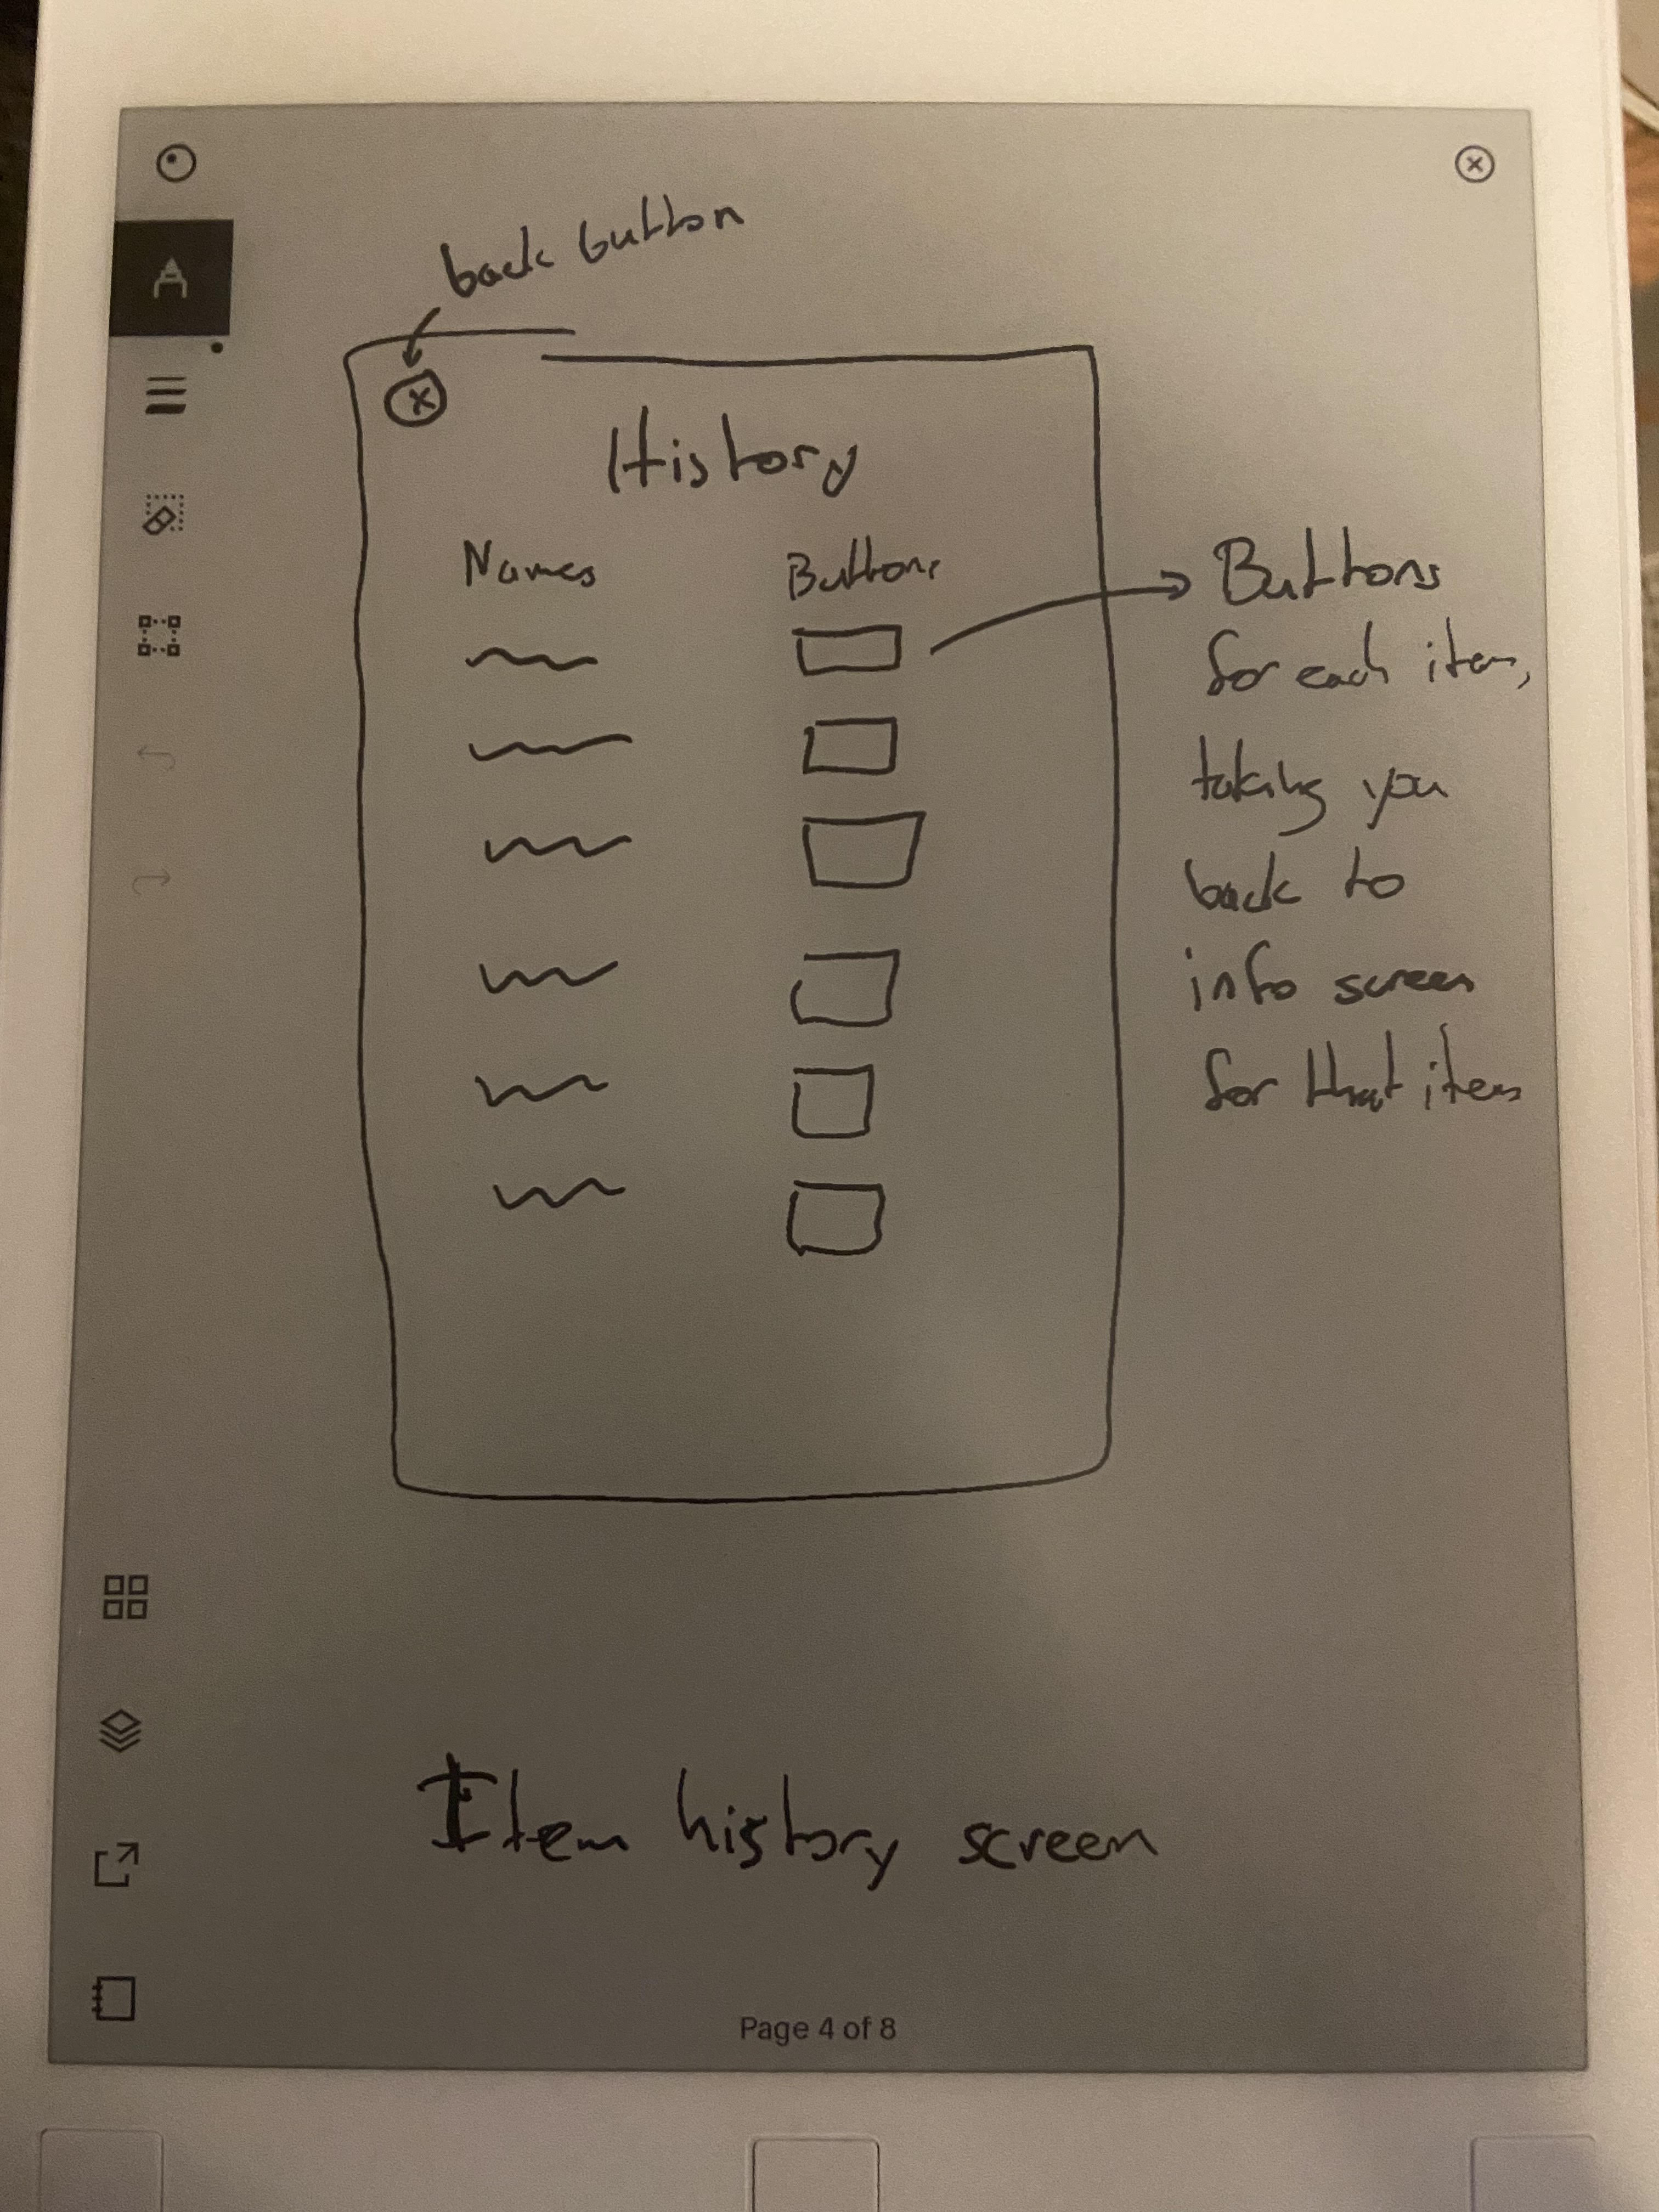 back button
History
Names Buttons
Buttons
for each item,
taking you
back to
info screen
for that item
Item history screen
Page 4 of 8